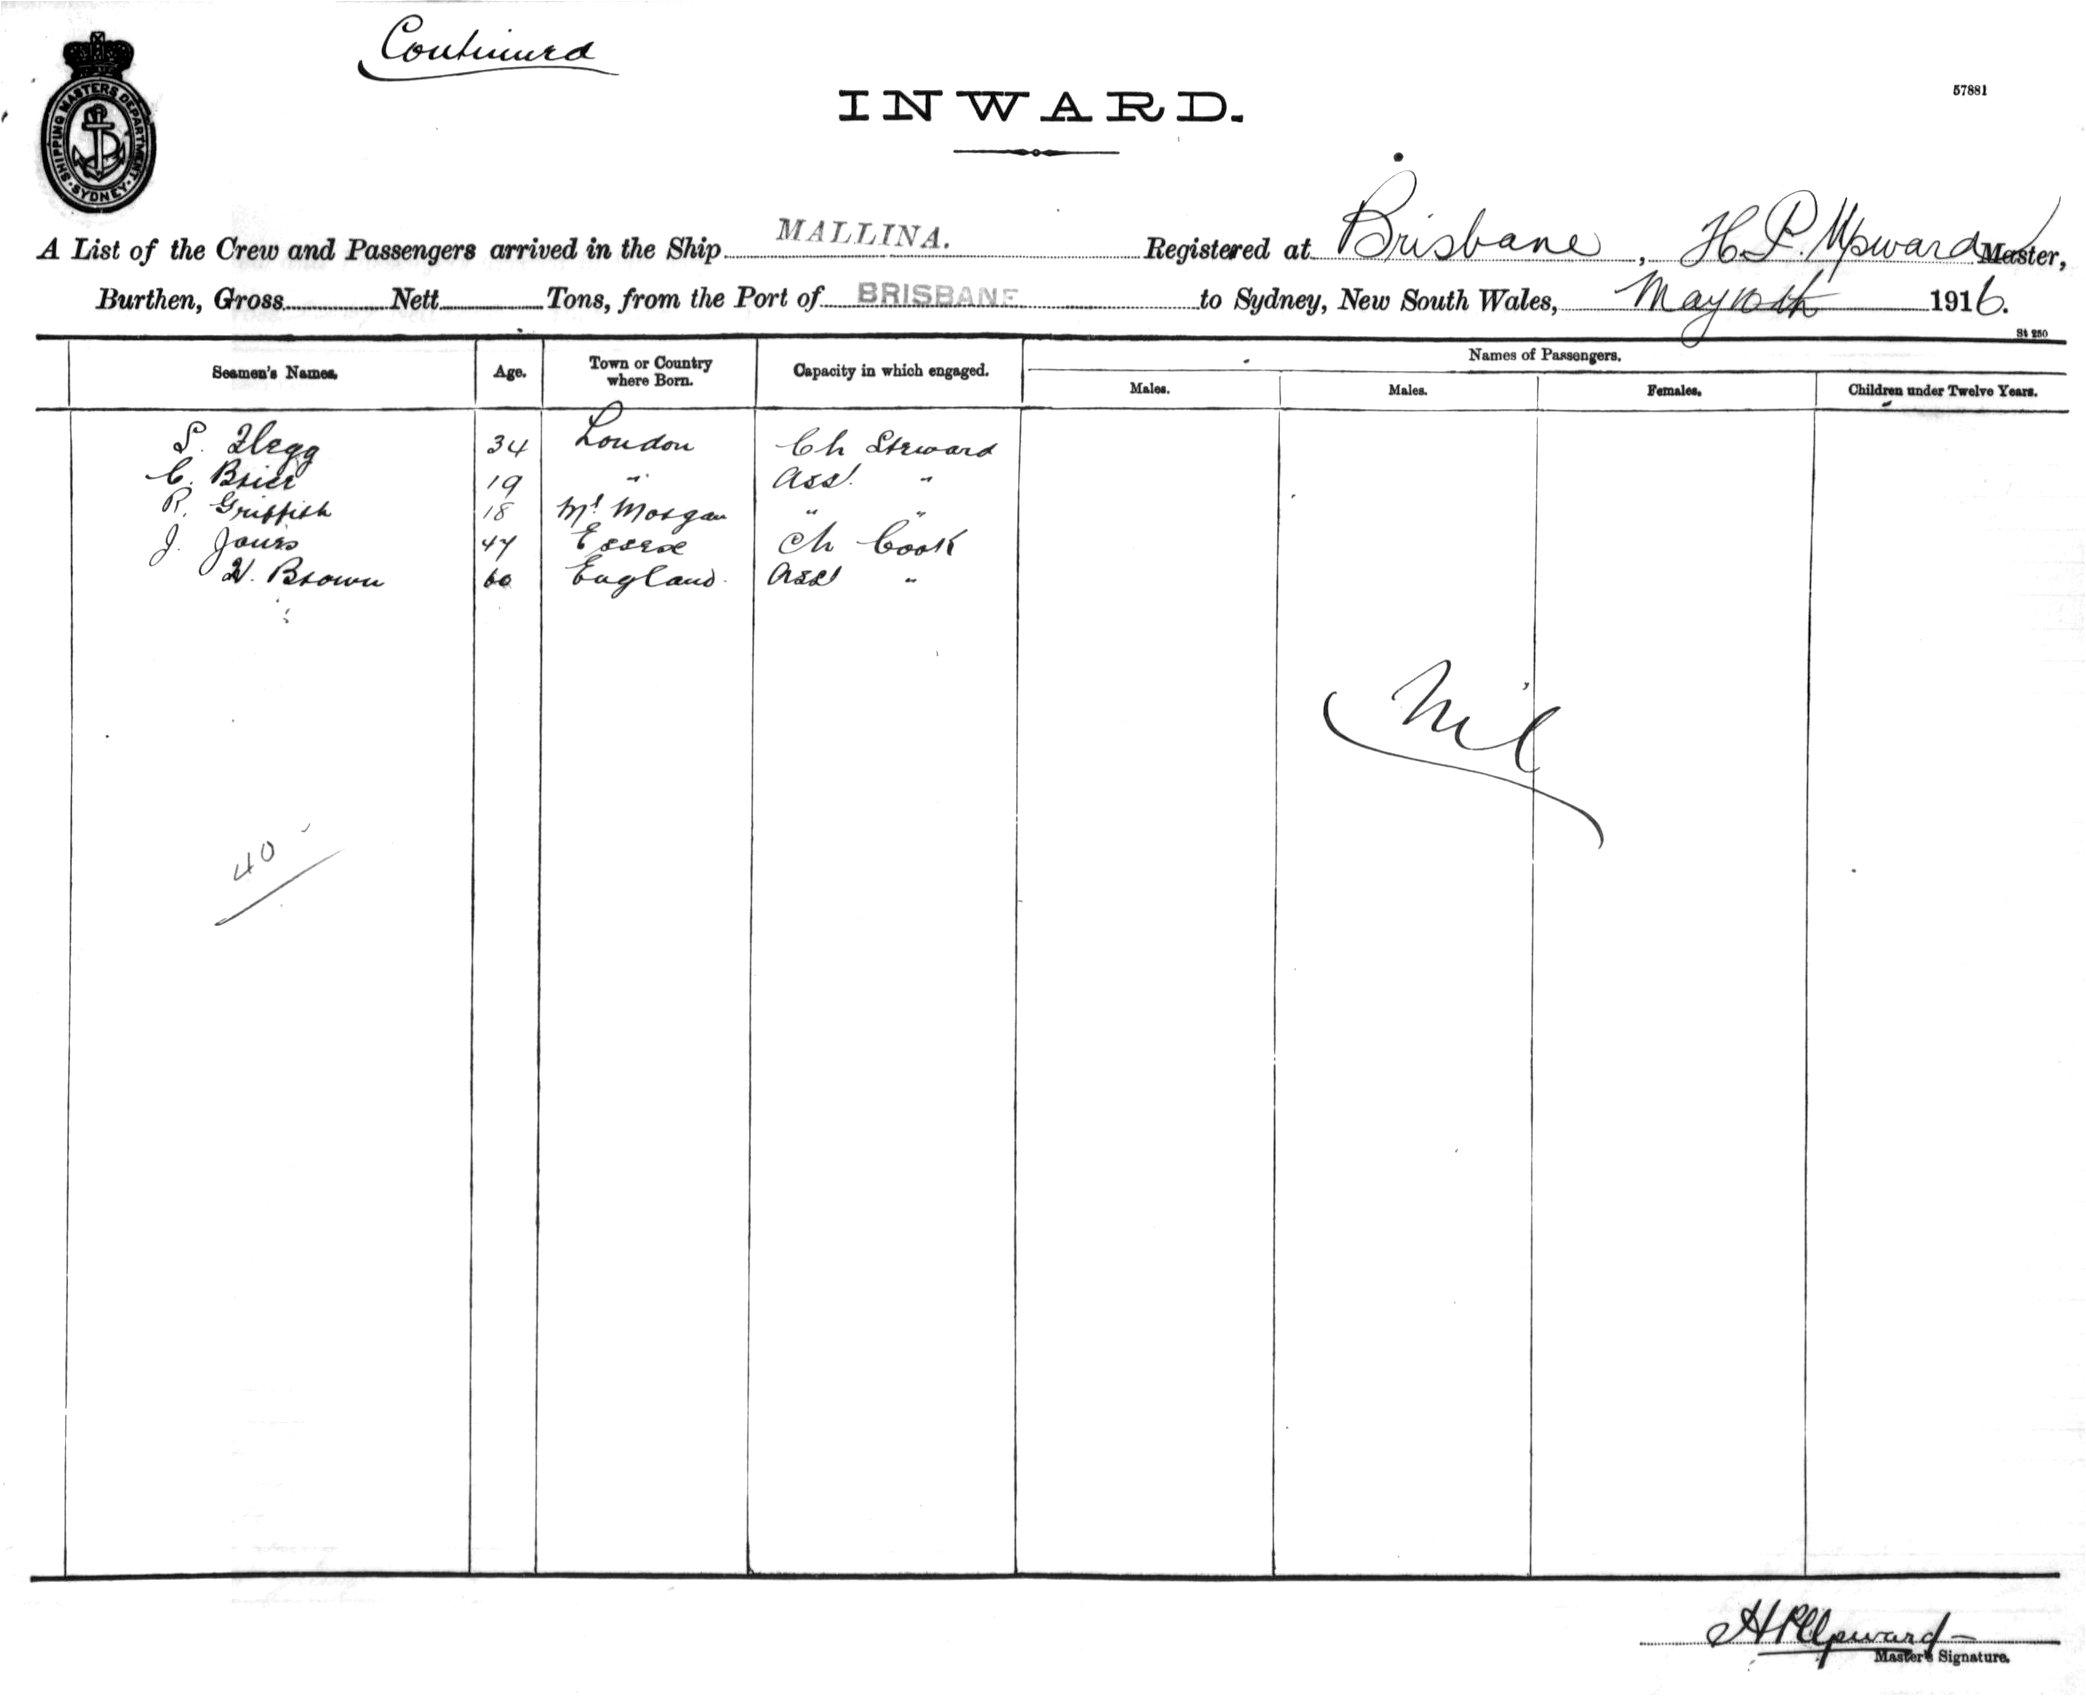 Continued
SHIPPING MASTERS DEPARTMENT
SYDNEY
INWARD.
57881
A List of the Crew and Passengers arrived in the Ship MALLINA. Registered at Brisbane, H. P. Upward Master,
Burthen, Gross Nett Tons, from the Port of BRISBANE to Sydney, New South Wales, May 10th 1916.
St 250
Seamen's Names. Age. Town or Country where Born. Capacity in which engaged. Names of Passengers.
Males. Males. Females. Children under Twelve Years.
S. Flegg 34 London Ch Steward
C. Brier 19 " Asst "
R. Griffith 18 Mt Morgan " "
J. Jones 47 Essex Ch Cook
W. Brown 60 England Asst "
Nil
40
H P Upward
Master's Signature.